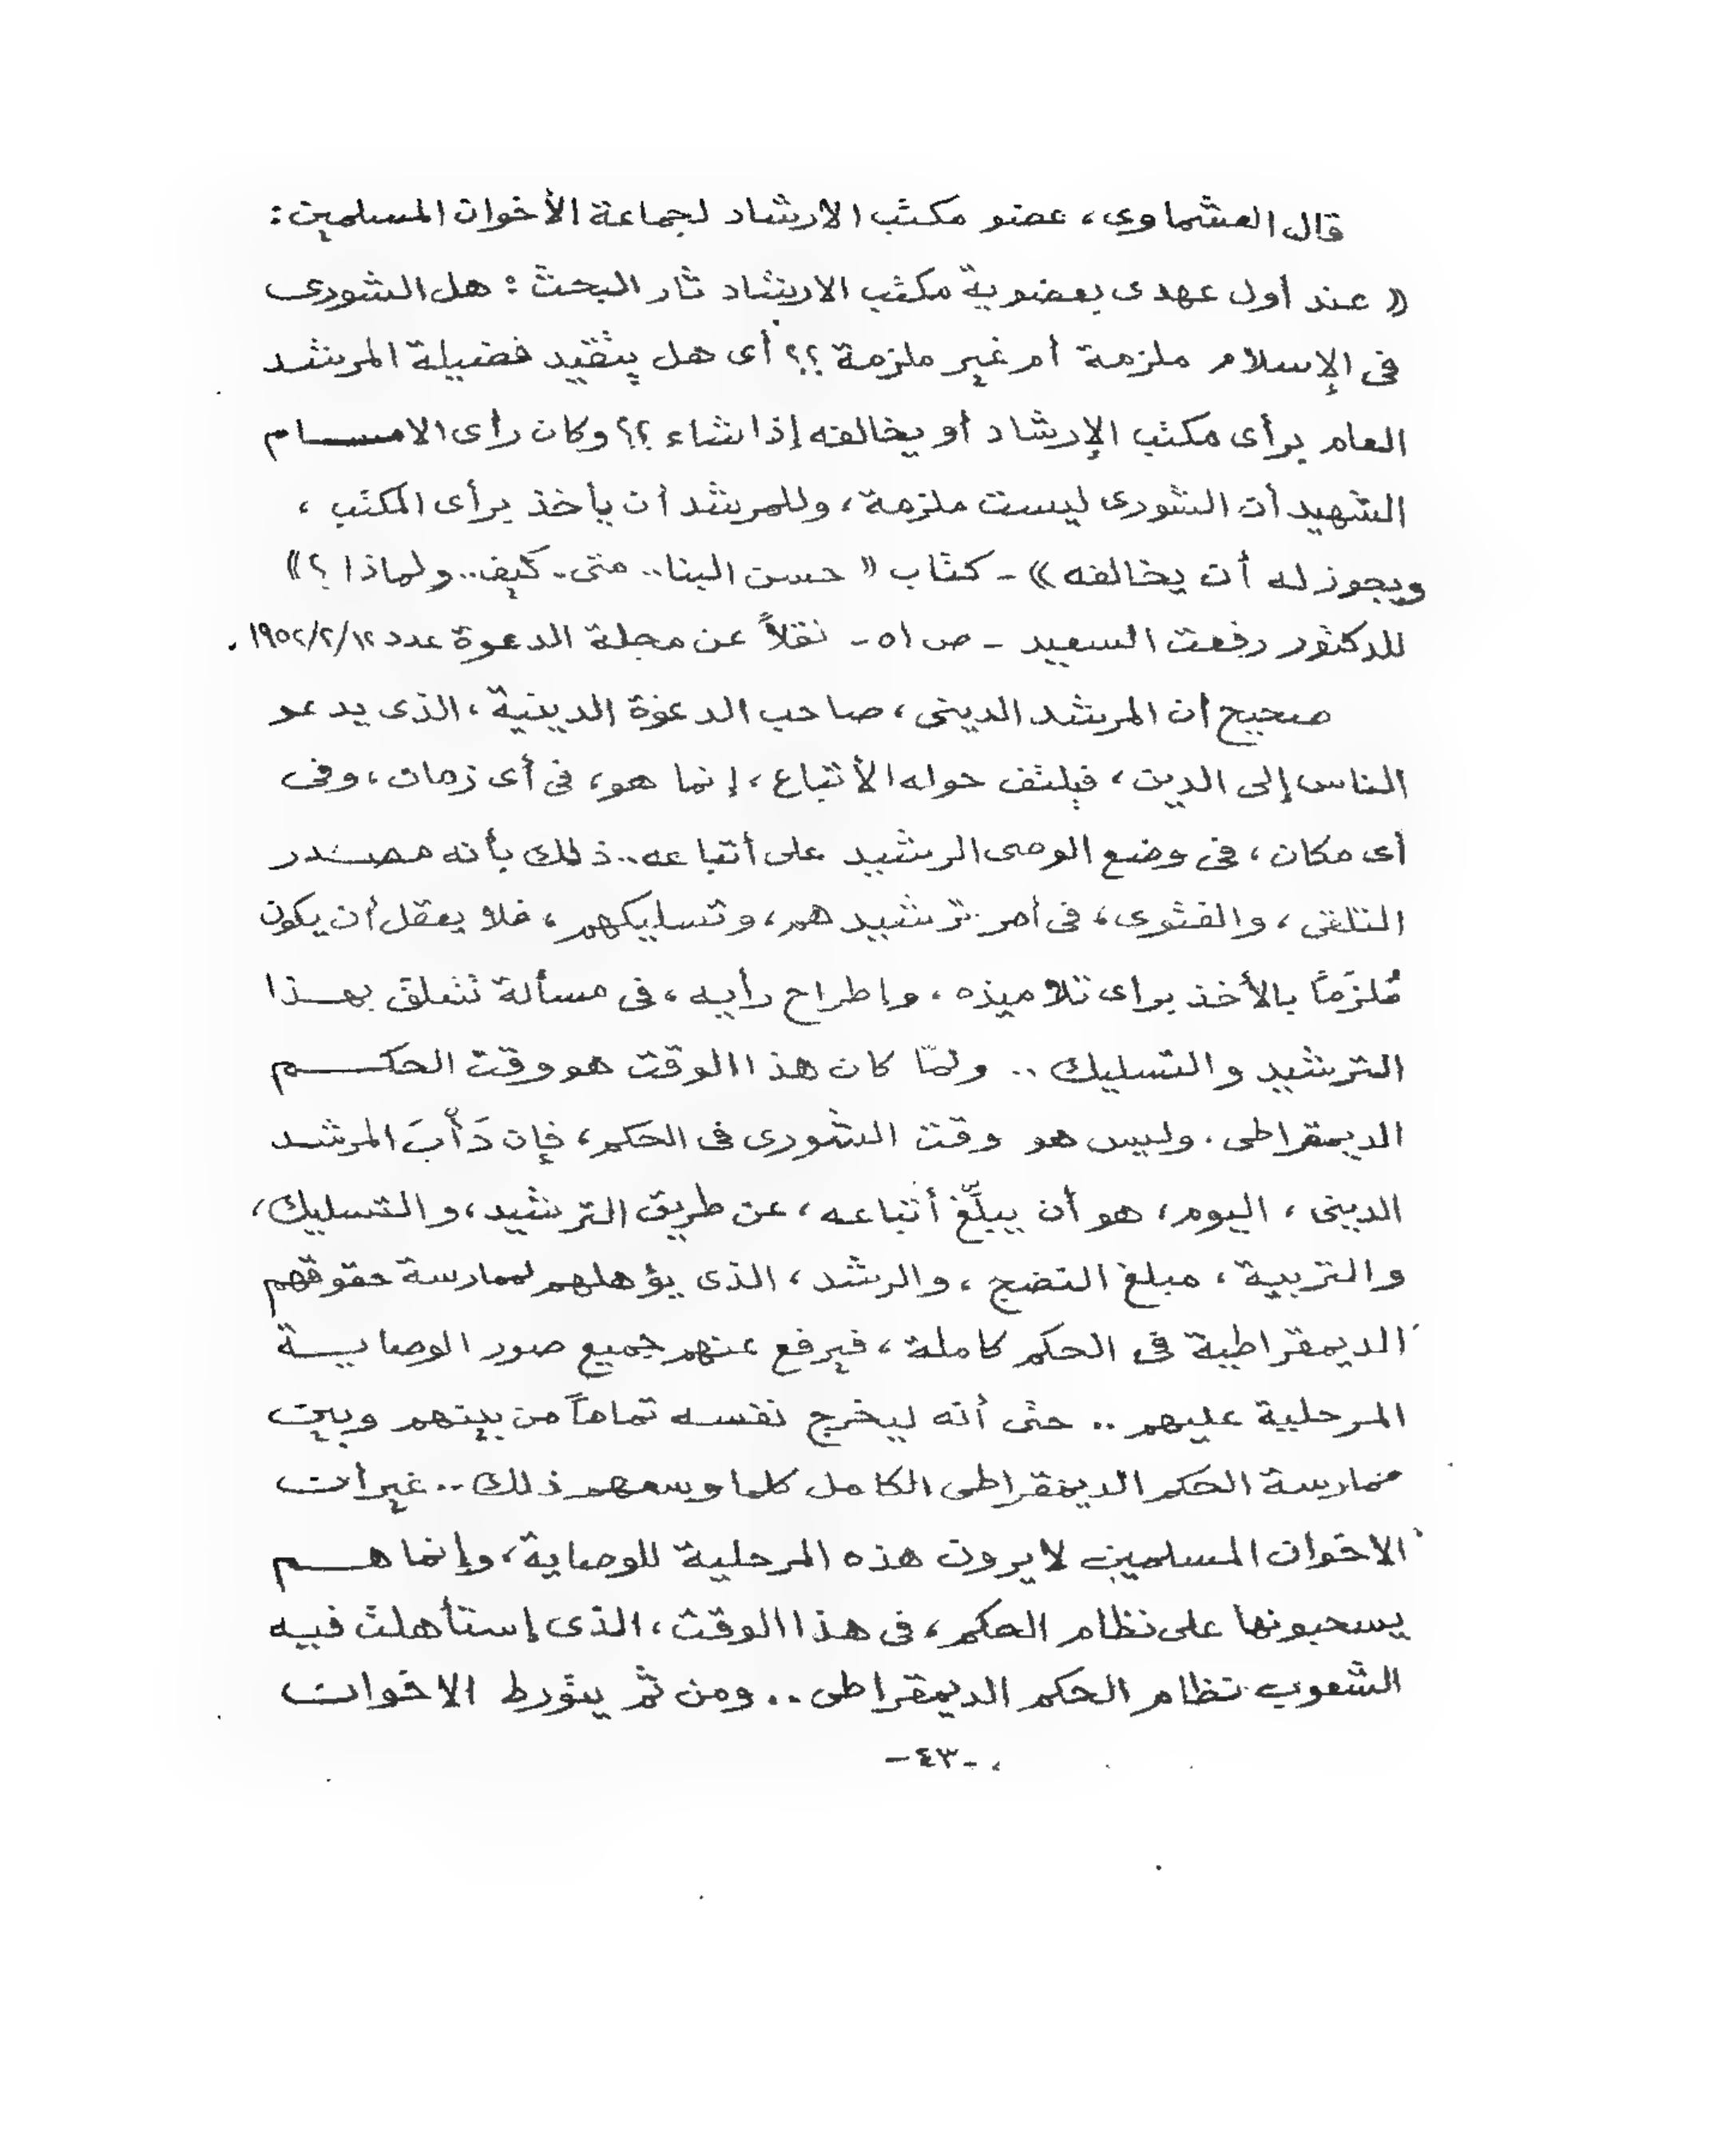 قال العشماوى، عضو مكتب الارشاد لجماعة الأخوان المسلمين:
« عند أول عهدى بعضوية مكتب الارشاد ثار البحث : هل الشورى
فى الإسلام ملزمة أم غير ملزمة ؟؟ أى هل يتقيد فضيلة المرشد
العام برأى مكتب الإرشاد أو يخالفه إذا شاء ؟؟ وكان رأى الامـــام
الشهيد أن الشورى ليست ملزمة، وللمرشد أن يأخذ برأى المكتب ،
ويجوز له أن يخالفه » - كتاب « حسن البنا.. متى.. كيف.. ولماذا ؟ »
للدكتور رفعت السعيد - ص ٥١ - نقلاً عن مجلة الدعوة عدد ١٩٥٢/٢/١٢ .
صحيح أن المرشد الدينى، صاحب الدعوة الدينية، الذى يدعو
الناس إلى الدين، فيلتف حوله الأتباع، إنما هو، فى أى زمان، وفى
أى مكان، فى وضع الوصى الرشيد على أتباعه.. ذلك بأنه مصـــدر
التلقى، والفتوى، فى أمر ترشيدهم، وتسليكهم، فلا يعقل أن يكون
مُلزَماً بالأخذ براى تلاميذه، وإطراح رأيه، فى مسألة تتعلق بهـــذا
الترشيد والتسليك .. ولمّا كان هذا الوقت هو وقت الحكـــم
الديمقراطى. وليس هو وقت الشورى فى الحكم، فإن دَأْبَ المرشـد
الدينى، اليوم، هو أن يبلّغ أتباعه، عن طريق الترشيد، والتسليك،
والتربية، مبلغ النضج، والرشد، الذى يؤهلهم لممارسة حقوقهم
الديمقراطية فى الحكم كاملة، فيرفع عنهم جميع صور الوصايــة
المرحلية عليهم .. حتى أنه ليخرج نفسه تماماً من بينهم وبين
ممارسة الحكم الديمقراطى الكامل كلما وسعهم ذلك.. غير أن
الاخوان المسلمين لا يرون هذه المرحلية للوصاية، وإنما هـــم
يسحبونها على نظام الحكم، فى هذا الوقت، الذى إستأهلت فيه
الشعوب نظام الحكم الديمقراطى .. ومن ثم يتورط الاخوان
-٤٣-